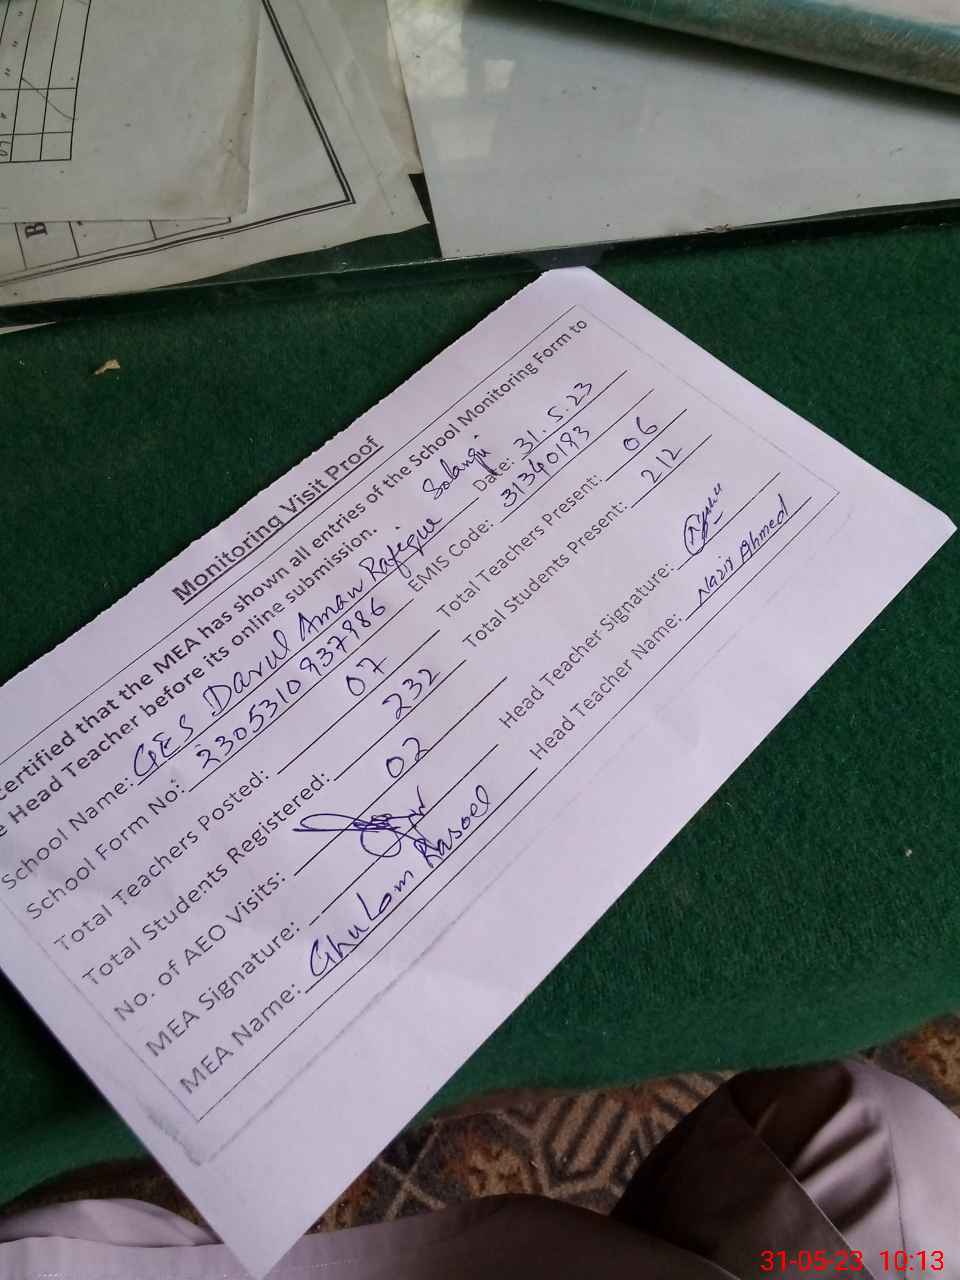 Monitoring Visit Proof
certified that the MEA has shown all entries of the School Monitoring Form to
Head Teacher before its online submission.
School Name: GES Darul Aman Rafique Solangi Date: 31.5.23
School Form No: 2305310937986 EMIS Code: 31340193
Total Teachers Posted: 07 Total Teachers Present: 06
Total Students Registered: 232 Total Students Present: 212
No. of AEO Visits: 02
MEA Signature: Head Teacher Signature:
MEA Name: Ghulam Rasool Head Teacher Name: Nazir Ahmed
31-05-23 10:13